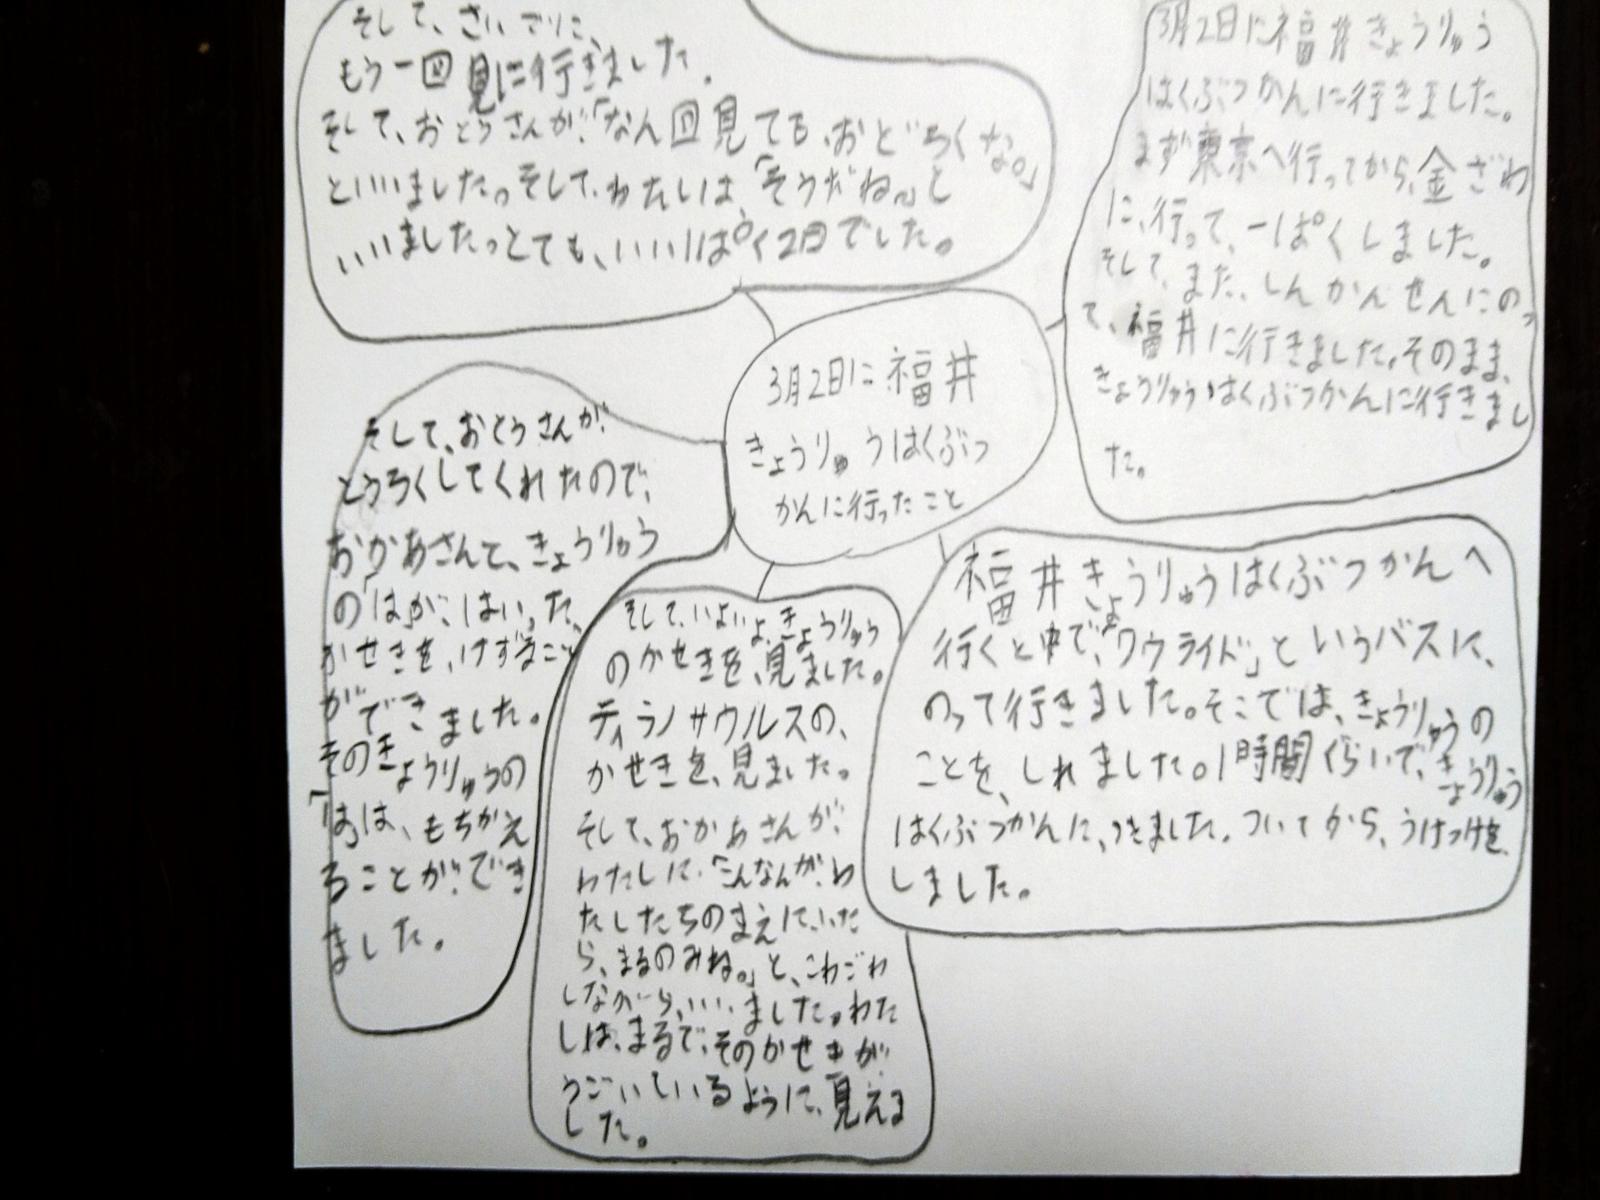 3月2日に福井
きょうりゅうはくぶつ
かんに行ったこと
3月2日に福井きょうりゅう
はくぶつかんに行きました。
まず東京へ行ってから、金ざわ
に、行って、一ぱくしました。
そして、また、しんかんせんにのっ
て、福井に行きました。そのまま、
きょうりゅうはくぶつかんに行きまし
た。
福井きょうりゅうはくぶつかんへ
行くと中で、「ワウライド」というバスに、
のって行きました。そこでは、きょうりゅうの
ことを、しれました。1時間くらいで、きょうりゅう
はくぶつかんに、つきました。ついてから、うけつけを
しました。
そして、いよいよ、きょうりゅう
のかせきを、見ました。
ティラノサウルスの、
かせきを、見ました。
そして、おかあさんが、
わたしに、「こんなんが、わ
たしたちのまえに、いた
ら、まるのみね。」と、こわごわ
しながら、いいました。わた
しは、まるで、そのかせきが
うごいているように、見えま
した。
そして、おとうさんが、
とうろくしてくれたので、
おかあさんと、きょうりゅう
の「は」が、はいった、
かせきを、けずること
ができました。
そのきょうりゅうの
「は」は、もちかえ
ることが、でき
ました。
そして、さいごに、
もう一回見に行きました。
そして、おとうさんが、「なん回見ても、おどろくな。」
といいました。そして、わたしは、「そうだね。」と
いいました。とても、いい1ぱく2日でした。